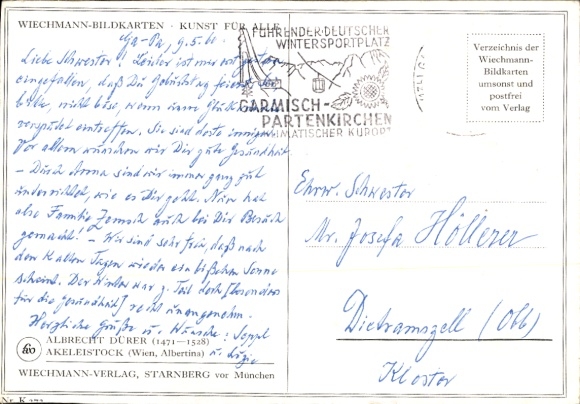 WIECHMANN-BILDKARTEN · KUNST FÜR ALLE
Ga-Pa, 9.5.61.
Liebe Schwester! Leider ist mir erst gestern
eingefallen, daß Du Geburtstag feierst
bitte, nicht böse, wenn unsre Glückw.
verspätet eintreffen. Sie sind desto inniger.
Vor allem wünschen wir Dir gute Gesundheit
– Durch Anna sind wir immer ganz gut
unterrichtet, wie es Dir geht. Nun hat
also Familie auch bei Dir Besuch
gemacht! – Wir sind sehr froh, daß nach
den kalten Tagen wieder ein bißchen Sonne
scheint. Der Winter war z. Teil doch (besonders
für die Gesundheit) recht unangenehm.
Herzliche Grüße u. Wünsche: Seppl
u.
ALBRECHT DÜRER (1471—1528)
AKELEISTOCK (Wien, Albertina)
WIECHMANN-VERLAG, STARNBERG vor München
Nr. K
FÜHRENDER DEUTSCHER
WINTERSPORTPLATZ
GARMISCH-
PARTENKIRCHEN
KLIMATISCHER KURORT
Verzeichnis der
Wiechmann-
Bildkarten
umsonst und
postfrei
vom Verlag
Ehrw. Schwester
Mr. Josefa Höllerer
Dietramszell (Obb)
Kloster